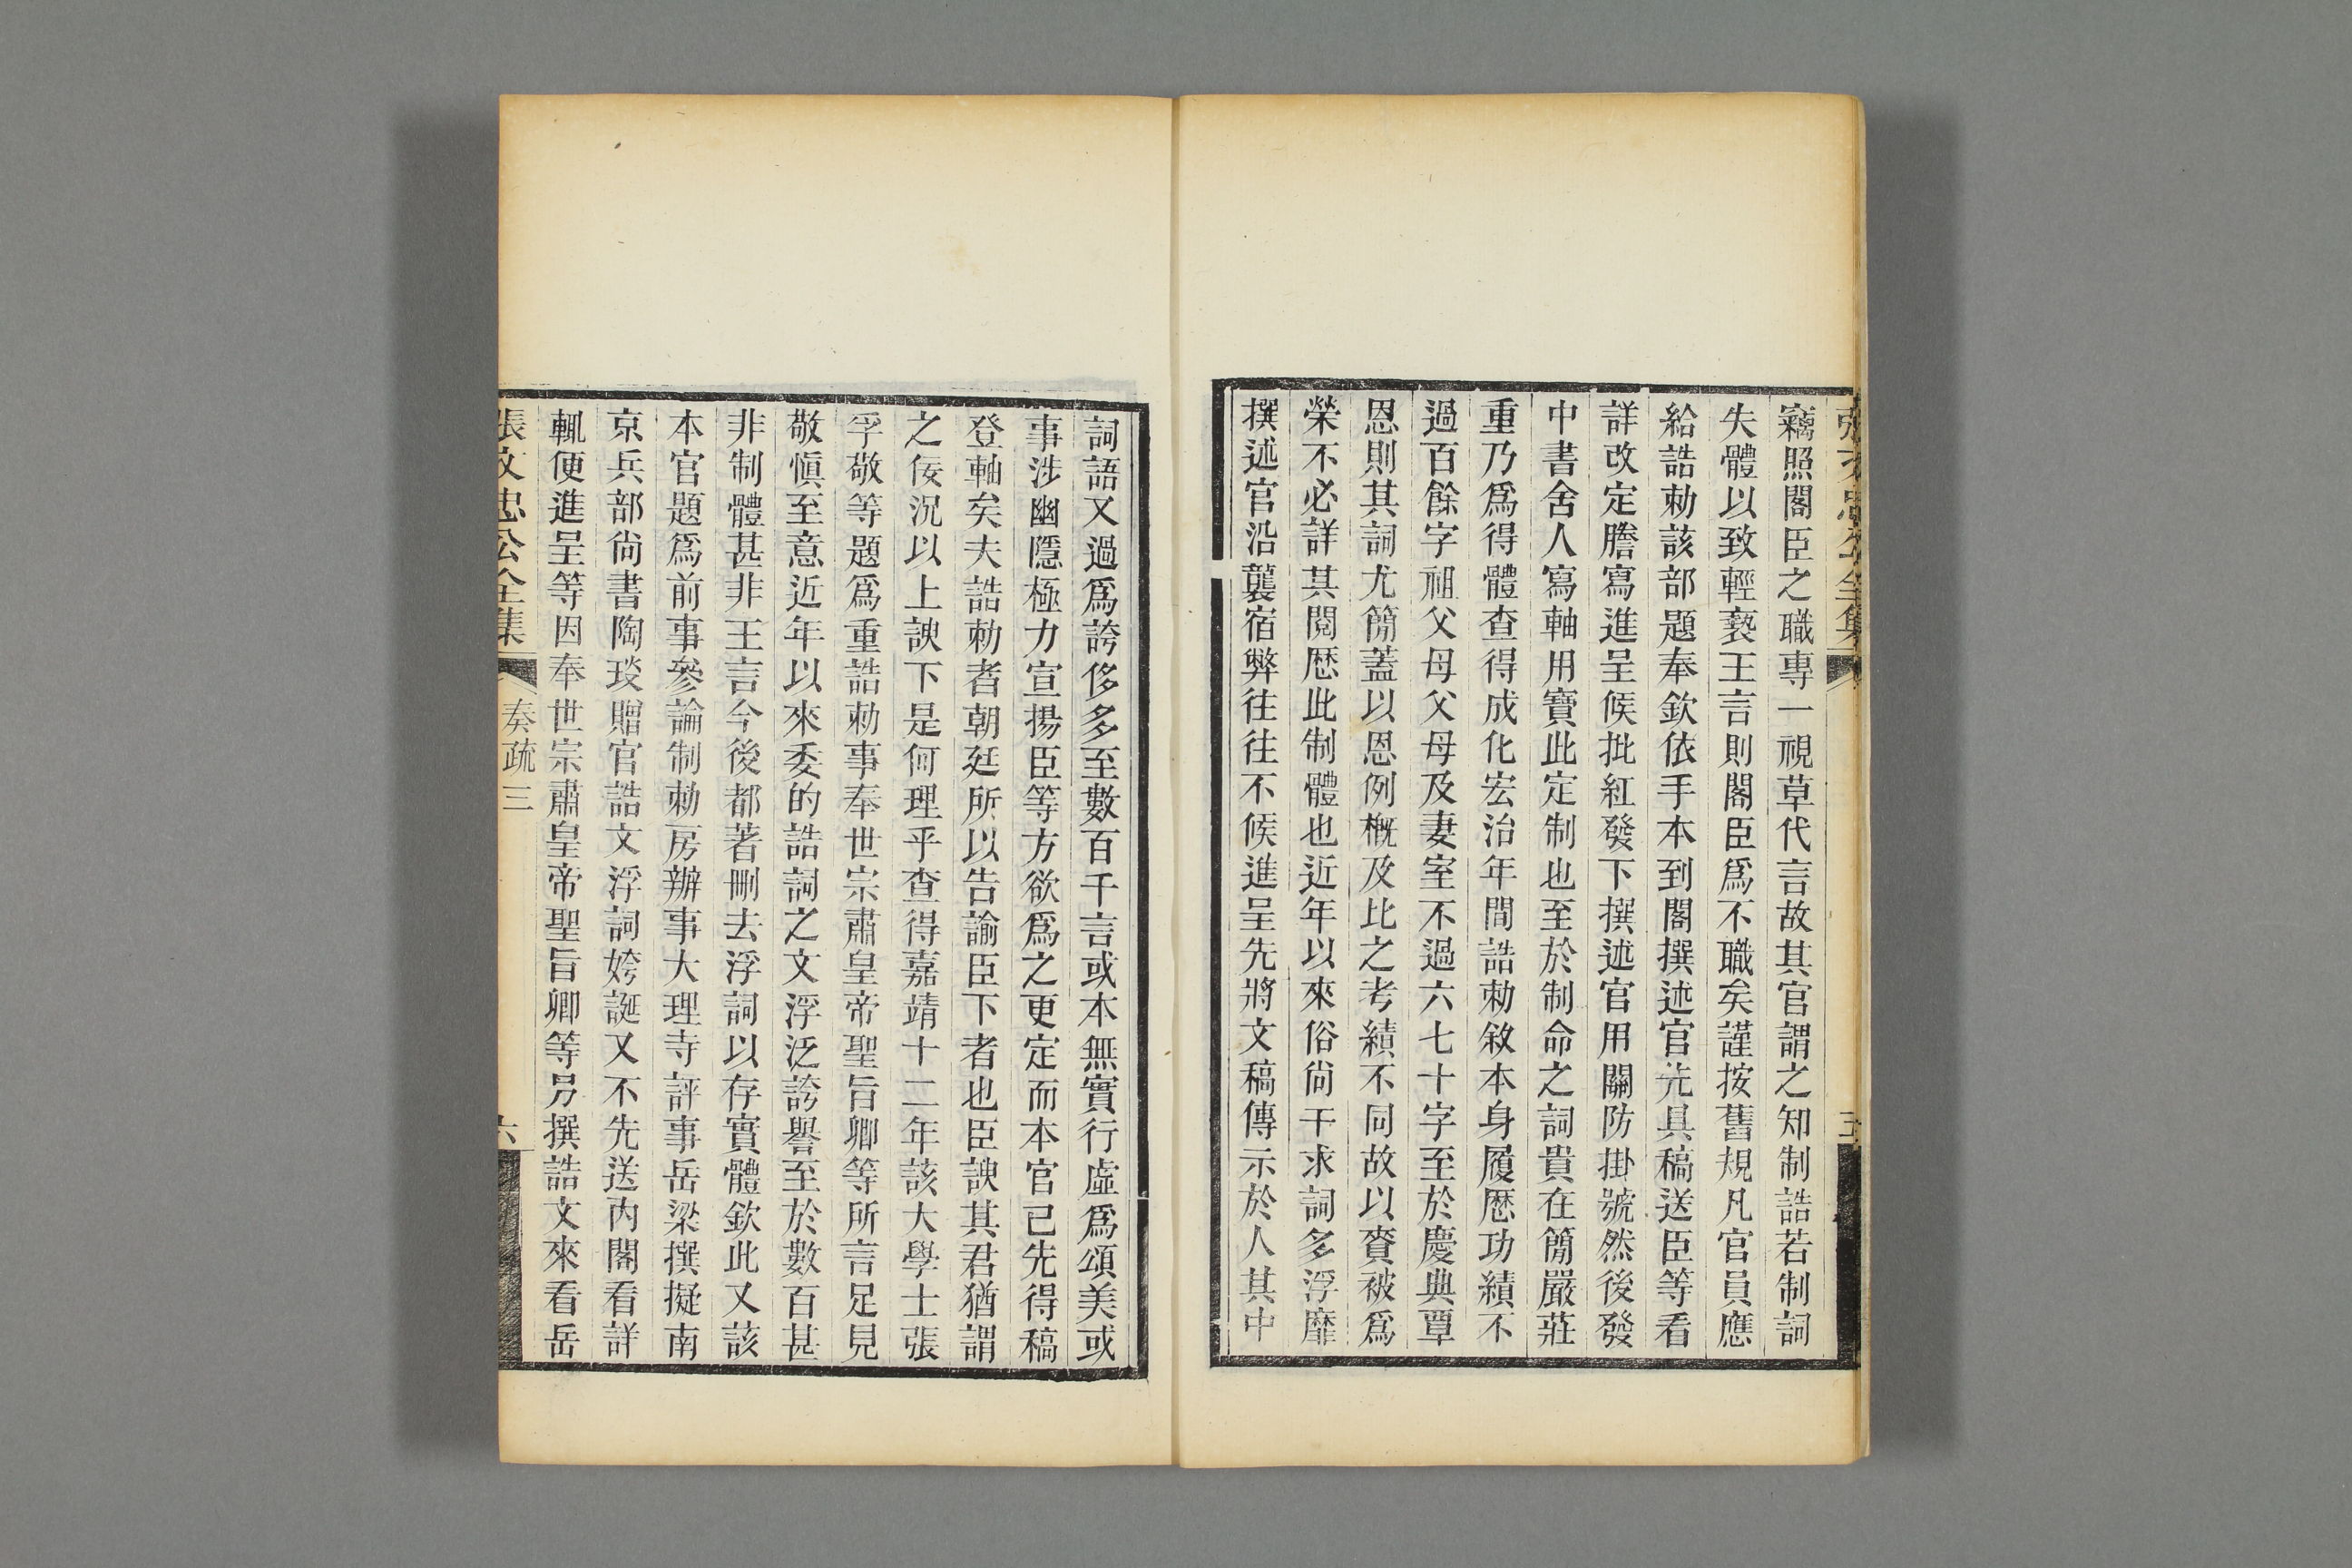 竊照閣臣之職專一視草代言故其官謂之知制誥若制詞
失體以致輕褻王言則閣臣爲不職矣謹按舊規凡官員應
給誥勅該部題奉欽依手本到閣撰述官先具稿送臣等看
詳改定謄寫進呈候批紅發下撰述官用關防掛號然後發
中書舍人寫軸用寶此定制也至於制命之詞貴在簡嚴莊
重乃爲得體查得成化宏治年間誥勅敘本身履歷功績不
過百餘字祖父母父母及妻室不過六七十字至於慶典覃
恩則其詞尤簡蓋以恩例槪及比之考績不同故以賚被爲
榮不必詳其閱歷此制體也近年以來俗尙干求詞多浮靡
撰述官沿襲宿弊往往不候進呈先將文稿傳示於人其中
詞語又過爲誇侈多至數百千言或本無實行虛爲頌美或
事涉幽隱極力宣揚臣等方欲爲之更定而本官已先得稿
登軸矣夫誥勅者朝廷所以告諭臣下者也臣諛其君猶謂
之佞況以上諛下是何理乎查得嘉靖十二年該大學士張
孚敬等題爲重誥勅事奉世宗肅皇帝聖旨卿等所言足見
敬愼至意近年以來委的誥詞之文浮泛誇譽至於數百甚
非制體甚非王言今後都著刪去浮詞以存實體欽此又該
本官題爲前事參論制勅房辦事大理寺評事岳梁撰擬南
京兵部尙書陶琰贈官誥文浮詞姱誕又不先送內閣看詳
輒便進呈等因奉世宗肅皇帝聖旨卿等另撰誥文來看岳
張文忠公全集 奏疏三 六